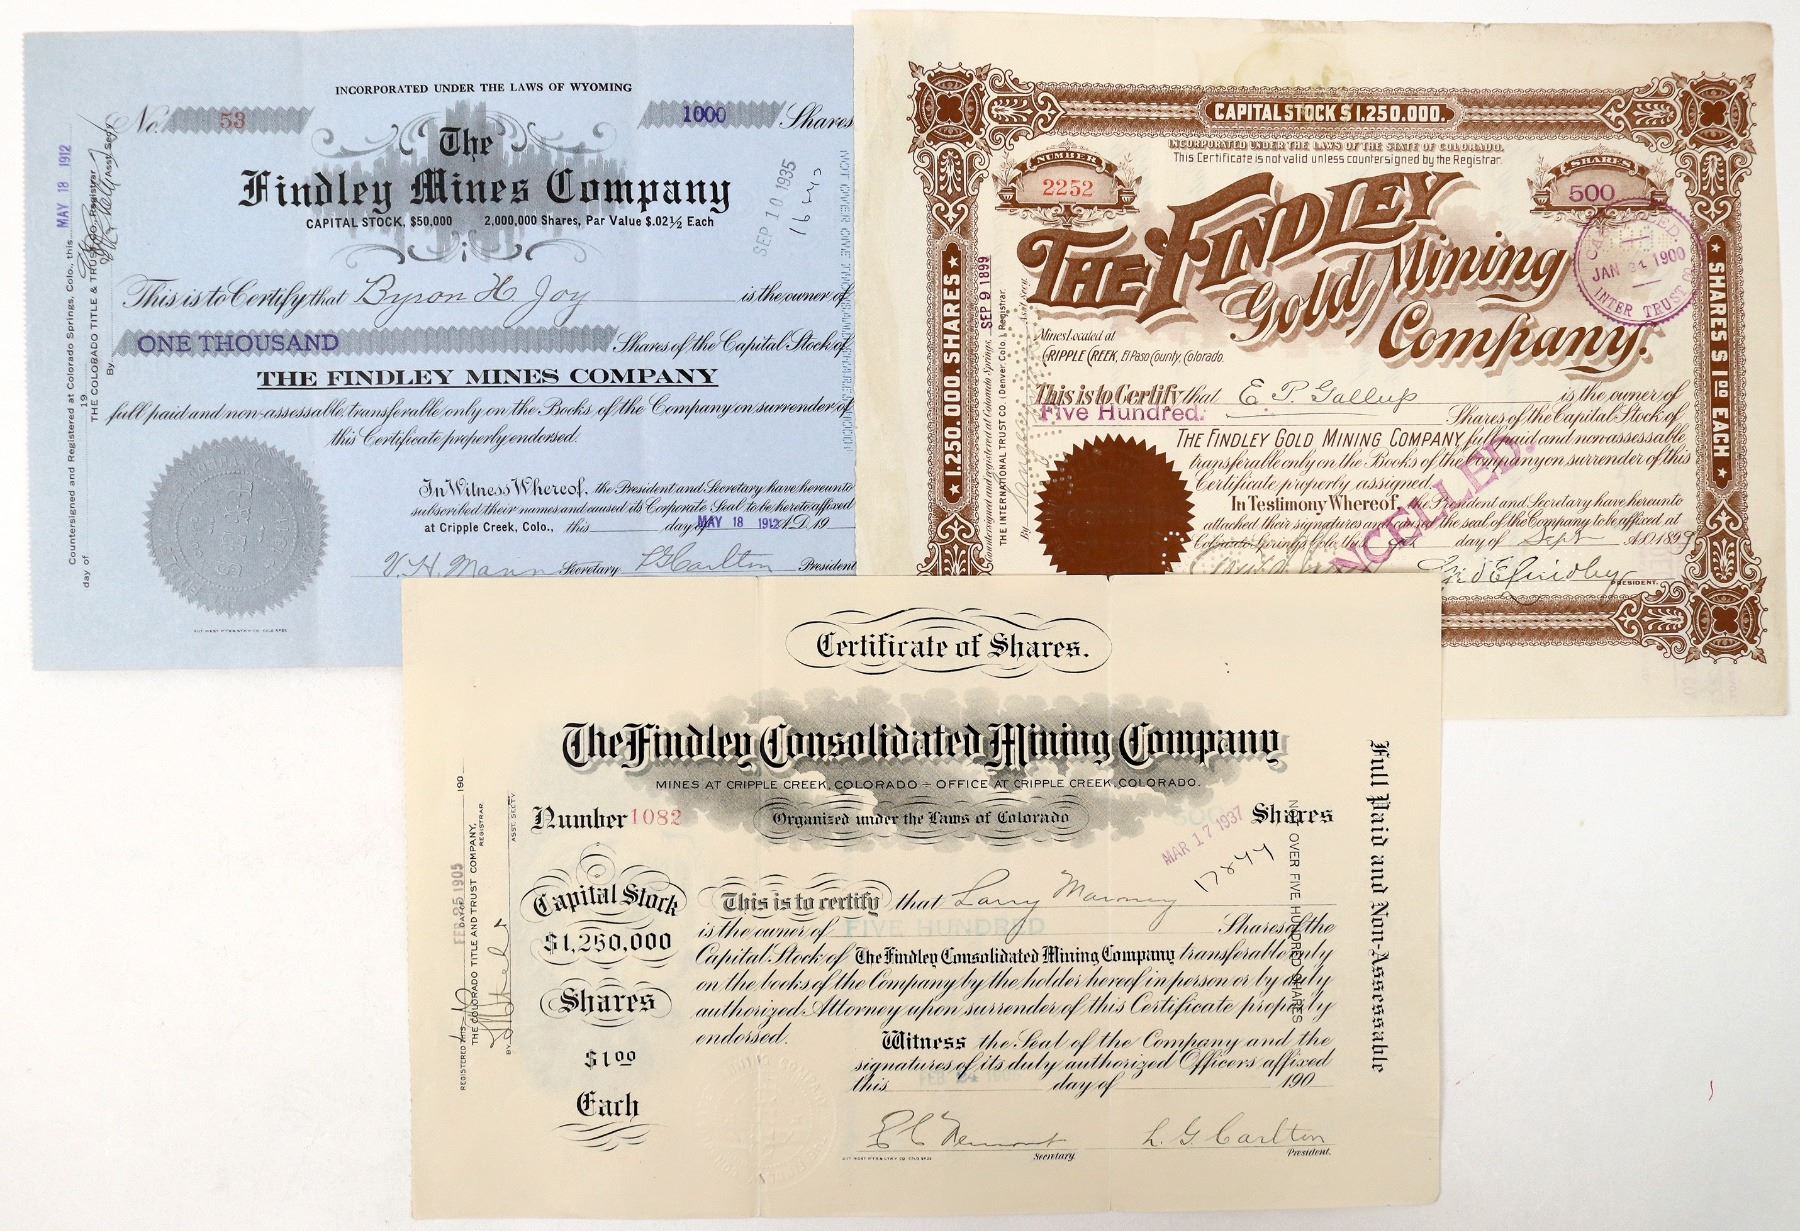 INCORPORATED UNDER THE LAWS OF WYOMING
No. 53
1000 Shares
The
Findley Mines Company
CAPITAL STOCK, $50,000 2,000,000 Shares, Par Value $.02½ Each
SEP 10 1935
This is to Certify that Byron H Joy is the owner of
ONE THOUSAND Shares of the Capital Stock of
THE FINDLEY MINES COMPANY
full paid and non-assessable, transferable only on the Books of the Company on surrender of
this Certificate properly endorsed.
In Witness Whereof, the President and Secretary have hereunto
subscribed their names and caused its Corporate Seal to be hereto affixed
at Cripple Creek, Colo., this day of MAY 18 1912 A.D. 19
V. H. Mann Secretary L G Carlton President
Countersigned and Registered at Colorado Springs, Colo., this MAY 18 1912
day of 19
THE COLORADO TITLE & TRUST CO. Registrar
By Asst. Secy
CAPITAL STOCK $1,250,000.
INCORPORATED UNDER THE LAWS OF THE STATE OF COLORADO.
This Certificate is not valid unless countersigned by the Registrar.
NUMBER
2252
SHARES
500
THE FINDLEY
Gold Mining
Company.
CANCELLED
JAN 31 1900
INTER TRUST CO
Mines Located at
CRIPPLE CREEK, El Paso County, Colorado.
This is to Certify that E. P. Gallup is the owner of
Five Hundred. Shares of the Capital Stock of
THE FINDLEY GOLD MINING COMPANY, full paid and non-assessable
transferable only on the Books of the Company on surrender of this
Certificate properly assigned.
In Testimony Whereof, the President and Secretary have hereunto
attached their signatures and caused the seal of the Company to be affixed at
Colorado Springs, Colo., this day of Sept A.D. 1899
Geo E Findley PRESIDENT.
CANCELLED.
1,250,000 SHARES
SHARES $1.00 EACH
SEP 9 1899
Countersigned and registered at Colorado Springs,
THE INTERNATIONAL TRUST CO. (Denver, Colo.) Registrar.
By Asst Secy.
Certificate of Shares.
The Findley Consolidated Mining Company
MINES AT CRIPPLE CREEK, COLORADO - OFFICE AT CRIPPLE CREEK, COLORADO.
Number 1082
Organized under the Laws of Colorado
Shares
MAR 17 1937
17244
Capital Stock
$1,250,000
Shares
$1.00
Each
This is to certify that Larry Maroney
is the owner of FIVE HUNDRED Shares of the
Capital Stock of The Findley Consolidated Mining Company transferable only
on the books of the Company by the holder hereof in person or by duly
authorized Attorney upon surrender of this Certificate properly
endorsed.
Witness the Seal of the Company and the
signatures of its duly authorized Officers affixed
this FEB 24 day of 190
L. G. Carlton
Secretary President.
NOT OVER FIVE HUNDRED SHARES
Full Paid and Non-Assessable
REGISTERED THIS DAY OF 190
FEB 25 1905
THE COLORADO TITLE AND TRUST COMPANY,
REGISTRAR.
BY ASST. SECTY.